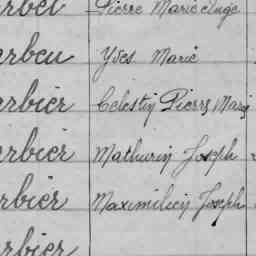 rbel Pierre Marie Ange
erbeu Yves Marie
erbier Celestin Pierre Marie
erbier Mathurin Joseph
rbier Maximilien Joseph
erbier